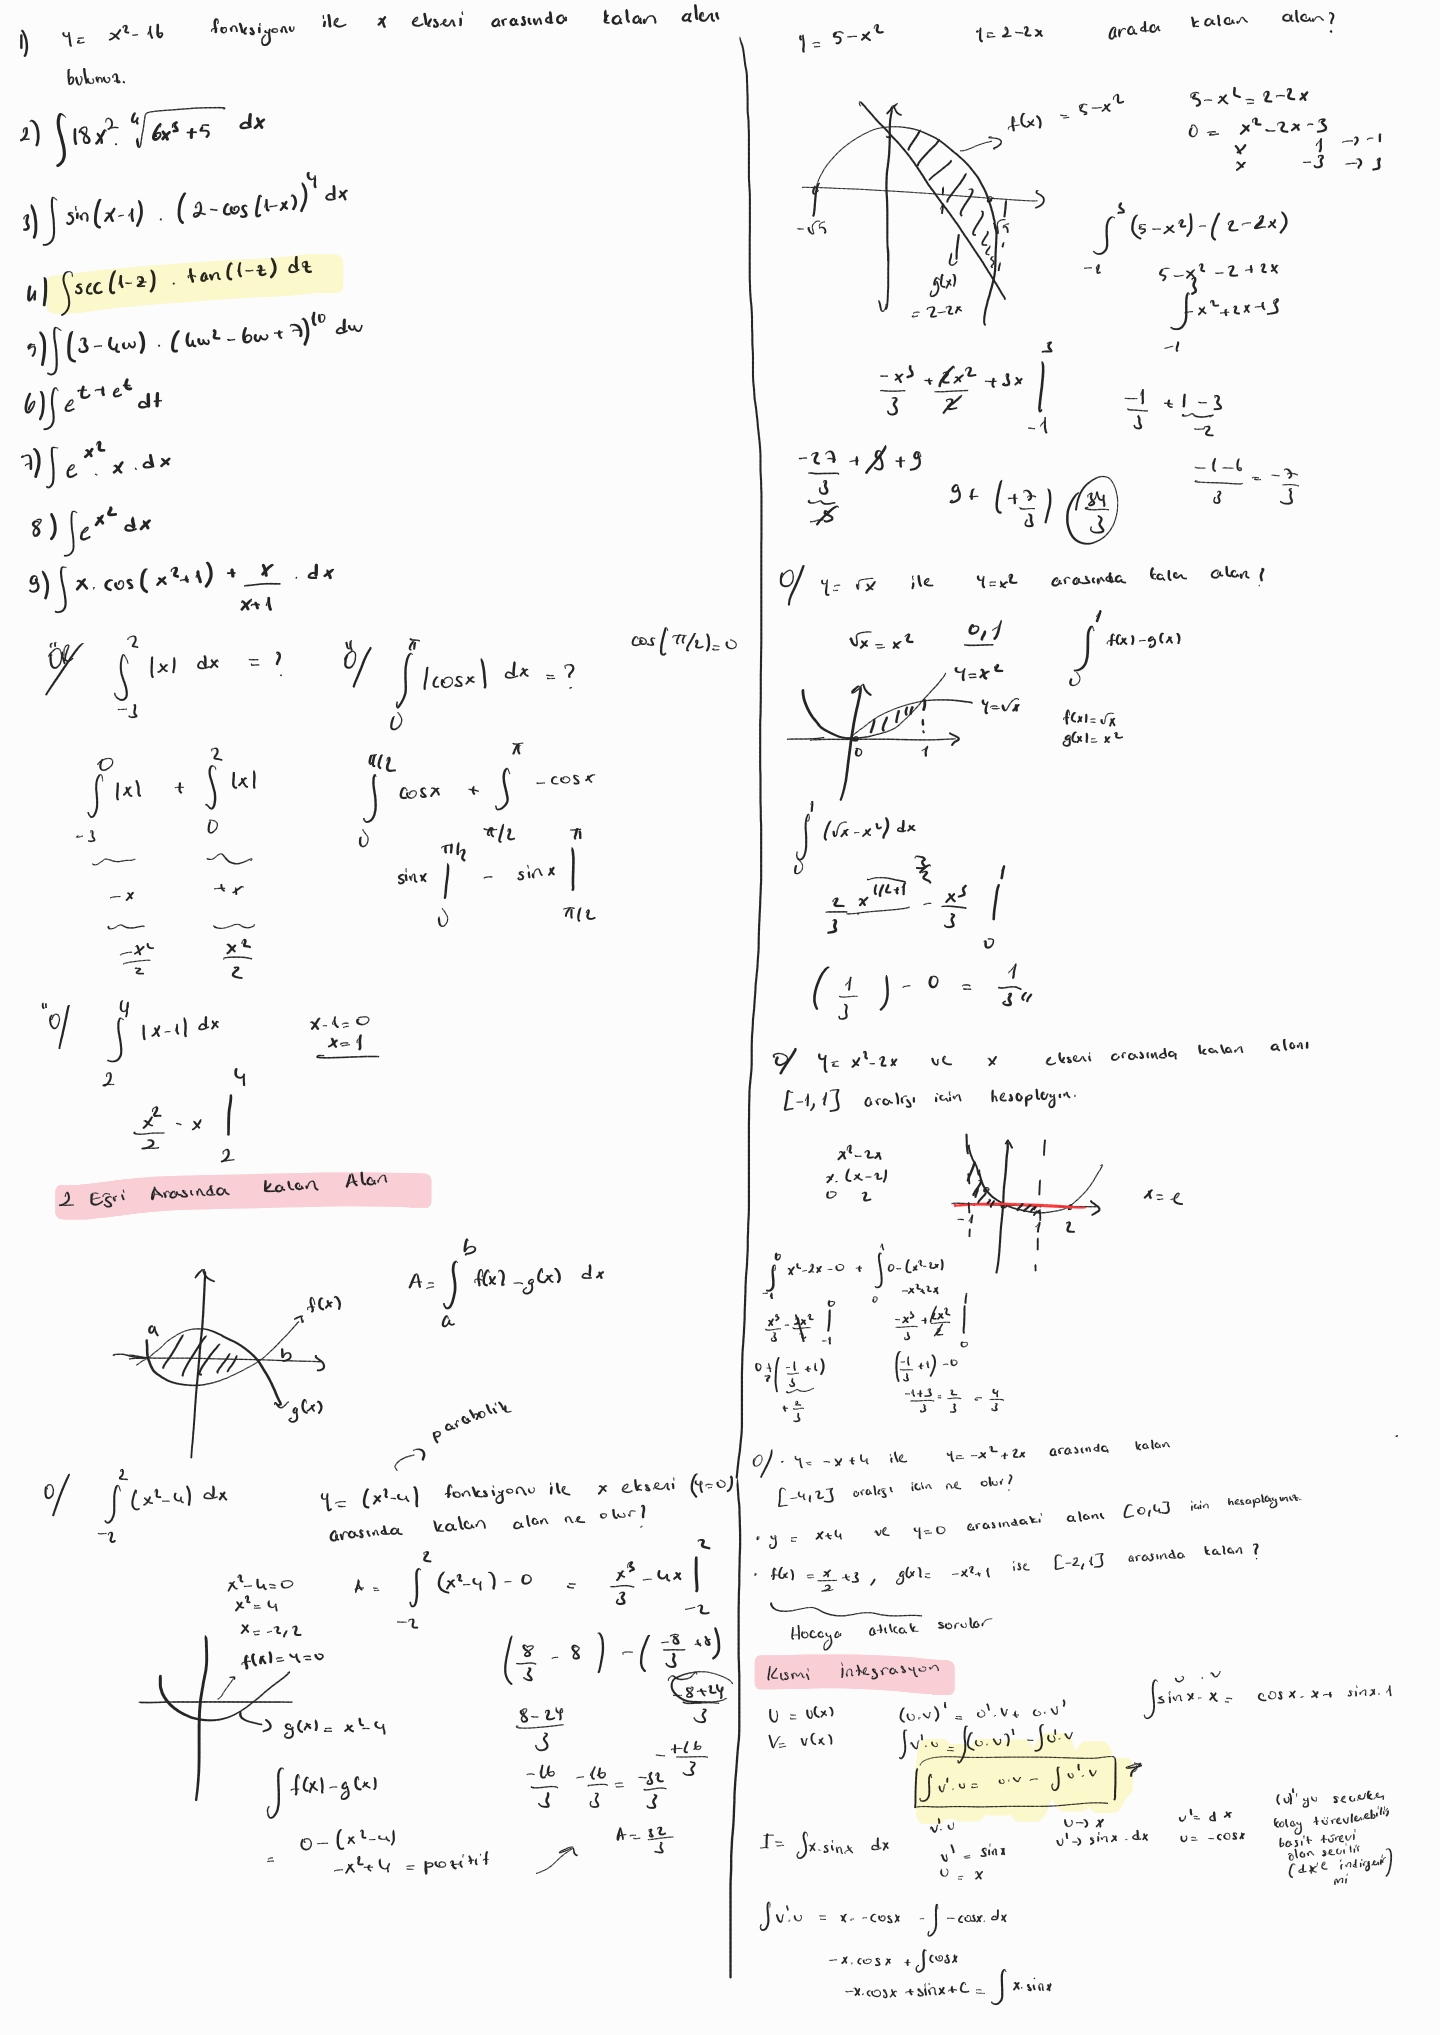 1) y = x²-16 fonksiyonu ile x ekseni arasında kalan alanı
bulunuz.
2) ∫18x². ⁴√(6x³+5) dx
3) ∫sin(x-1) . (2-cos(1-x))⁴ dx
4) ∫sec(1-z) . tan(1-z) dz
5) ∫(3-4w) . (4w²-6w+7)¹⁰ dw
6) ∫e^(t+e^t) dt
7) ∫e^(x²). x. dx
8) ∫e^(x²) dx
9) ∫x. cos(x²+1) + x/(x+1) . dx
∫_{-3}^{2} |x| dx = ?
Ö/ ∫_0^π |cosx| dx = ?
cos(π/2)=0
∫_{-3}^0 |x| + ∫_0^2 |x|
-x +x
-x²/2 x²/2
∫_0^{π/2} cosx + ∫_{π/2}^π -cosx
sinx |_0^{π/2} - sinx |_{π/2}^π
Ö/ ∫_2^4 |x-1| dx
x-1=0
x=1
x²/2 - x |_2^4
2 Eğri Arasında Kalan Alan
a b f(x) g(x)
A= ∫_a^b f(x)-g(x) dx
Ö/ ∫_{-2}^2 (x²-4) dx
parabolik
y= (x²-4) fonksiyonu ile x ekseni (y=0)
arasında kalan alan ne olur?
x²-4=0
x²=4
x=-2,2
f(x)=y=0
g(x)= x²-4
∫f(x)-g(x)
= 0-(x²-4)
-x²+4 = pozitif
A = ∫_{-2}^2 (x²-4)-0 = x³/3 -4x |_{-2}^2
(8/3 - 8) - (-8/3 +8)
(8-24)/3 (-8+24)/3
-+16/3
-16/3 -16/3 = -32/3
A=32/3
y= 5-x² y=2-2x arada kalan alan?
f(x) = 5-x²
-√5 1 √5
g(x)
= 2-2x
5-x²=2-2x
0= x²-2x-3
x 1 → -1
x -3 → 3
∫_{-1}^3 (5-x²)-(2-2x)
5-x²-2+2x
∫_{-1}^3 -x²+2x+3
-x³/3 + 2x²/2 + 3x |_{-1}^3
-1/3 + 1-3
-2
-27/3 + 9 + 9
9+ (+7/3) 34/3
(-1-6)/3 = -7/3
Ö/ y= √x ile y=x² arasında kalan alan?
√x = x² 0,1
∫_0^1 f(x)-g(x)
y=x²
y=√x
0 1
f(x)=√x
g(x)= x²
∫_0^1 (√x-x²) dx
2/3 x^(1/2+1) 3/2 - x³/3 |_0^1
(1/3) - 0 = 1/3 "
Ö/ y= x²-2x ve x ekseni arasında kalan alanı
[-1,1] aralığı için hesaplayın.
x²-2x
x. (x-2)
0 2
-1 1 2
∫_{-1}^0 x²-2x-0 + ∫_0^1 0-(x²-2x)
-x²+2x
-x³/3 + 2x²/2 |_0^1
(-1/3 +1) -0
+2/3
(-1+3)/3 = 2/3 = 4/3
Ö/ · y= -x+4 ile y= -x²+2x arasında kalan
[-4,2] aralığı için ne olur?
· y = x+4 ve y=0 arasındaki alanı [0,4] için hesaplayınız.
· f(x) = x/2 +3, g(x)= -x²+1 ise [-2,1] arasında kalan?
Hocaya atılacak sorular
Kısmi integrasyon
U = u(x)
V= v(x)
(u.v)' = u'.v + u.v'
∫v'.u = ∫(u.v)' - ∫u'.v
∫v'.u = u.v - ∫u'.v
u . v
∫sinx.x = cosx.x + sinx.1
I= ∫x.sinx dx
v'.u
v' = sinx
u = x
u → x
v' → sinx.dx
u'= dx
v= -cosx
(u)'yu seçerken
kolay türevlenebilir
basit türevi
olan seçilir
mi
∫v'.u = x.-cosx - ∫-cosx.dx
-x.cosx + ∫cosx
-x.cosx + sinx + C = ∫x.sinx